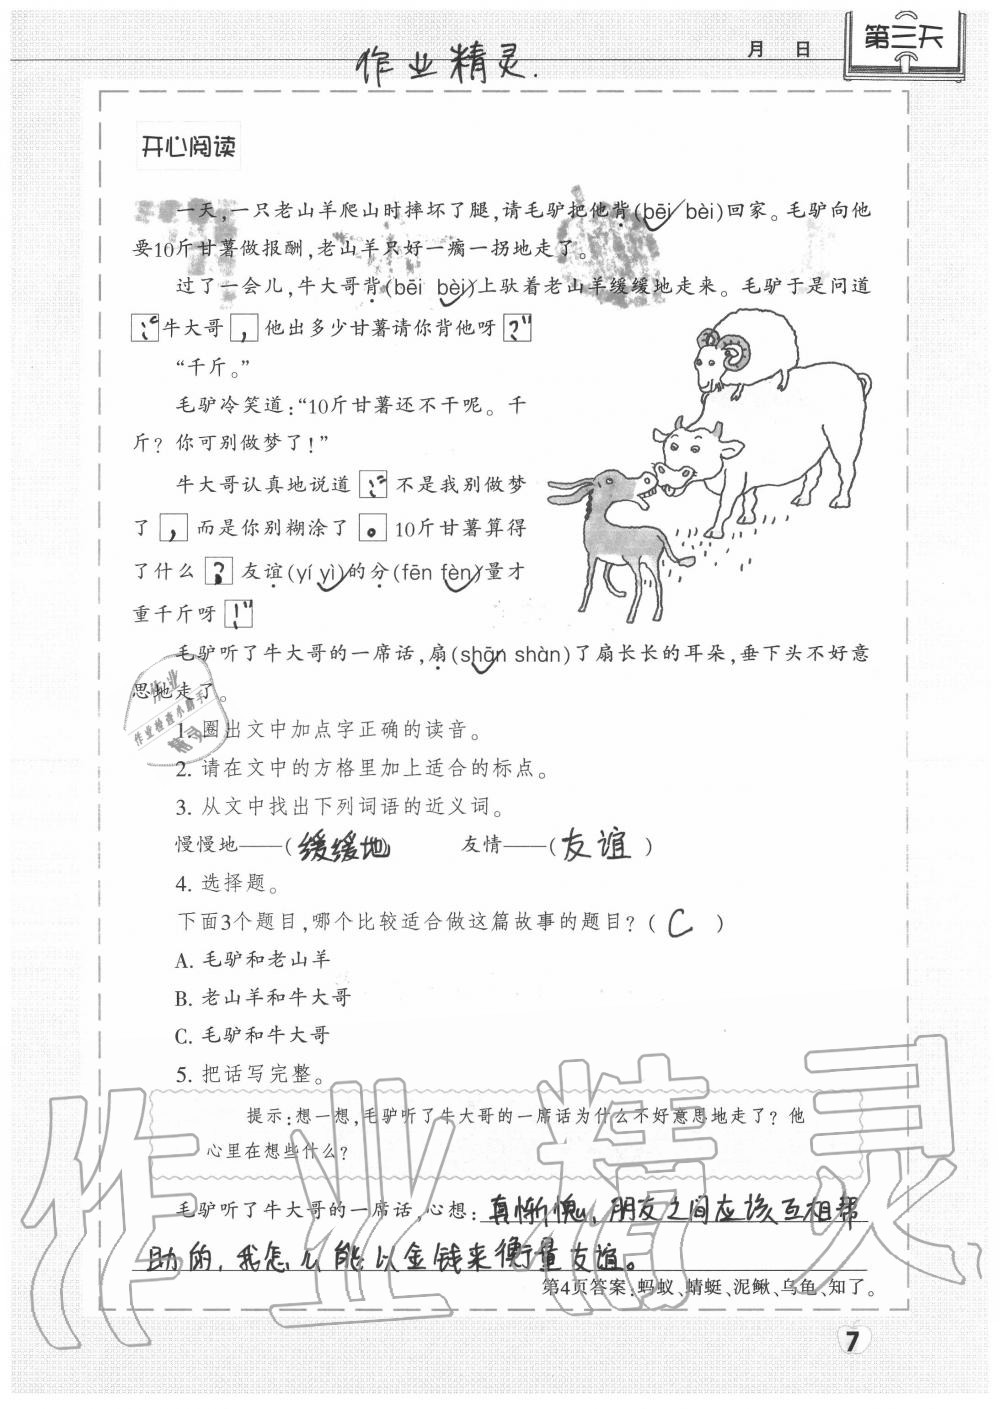 作业精灵.
月 日
第三天
开心阅读
一天,一只老山羊爬山时摔坏了腿,请毛驴把他背(bēi✓ bèi)回家。毛驴向他
要10斤甘薯做报酬,老山羊只好一瘸一拐地走了。
过了一会儿,牛大哥背(bēi bèi✓)上驮着老山羊缓缓地走来。毛驴于是问道
:“牛大哥,他出多少甘薯请你背他呀?”
“千斤。”
毛驴冷笑道:“10斤甘薯还不干呢。千
斤?你可别做梦了!”
牛大哥认真地说道:“不是我别做梦
了,而是你别糊涂了。10斤甘薯算得
了什么?友谊(yí yì✓)的分(fēn fèn✓)量才
重千斤呀!”
毛驴听了牛大哥的一席话,扇(shān✓ shàn)了扇长长的耳朵,垂下头不好意
思地走了。
作业
作业检查小助手
精灵
1. 圈出文中加点字正确的读音。
2. 请在文中的方格里加上适合的标点。
3. 从文中找出下列词语的近义词。
慢慢地——(缓缓地) 友情——(友谊)
4. 选择题。
下面3个题目,哪个比较适合做这篇故事的题目?( C )
A. 毛驴和老山羊
B. 老山羊和牛大哥
C. 毛驴和牛大哥
5. 把话写完整。
提示:想一想,毛驴听了牛大哥的一席话为什么不好意思地走了?他
心里在想些什么?
毛驴听了牛大哥的一席话,心想:真惭愧,朋友之间应该互相帮
助的,我怎么能以金钱来衡量友谊。
第4页答案:蚂蚁、蜻蜓、泥鳅、乌鱼、知了。
作业精灵
7